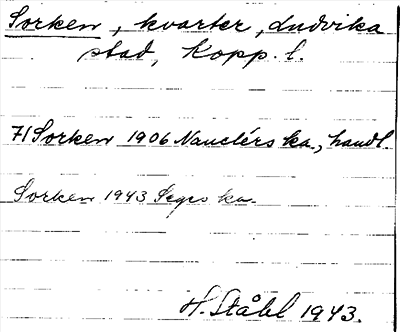 Sorken, kvarter, Ludvika
stad, Kopp. l.
71 Sorken 1906 Nauclérs ka, handl.
Sorken 1943 Segs ka.
H. Ståhl 1943.